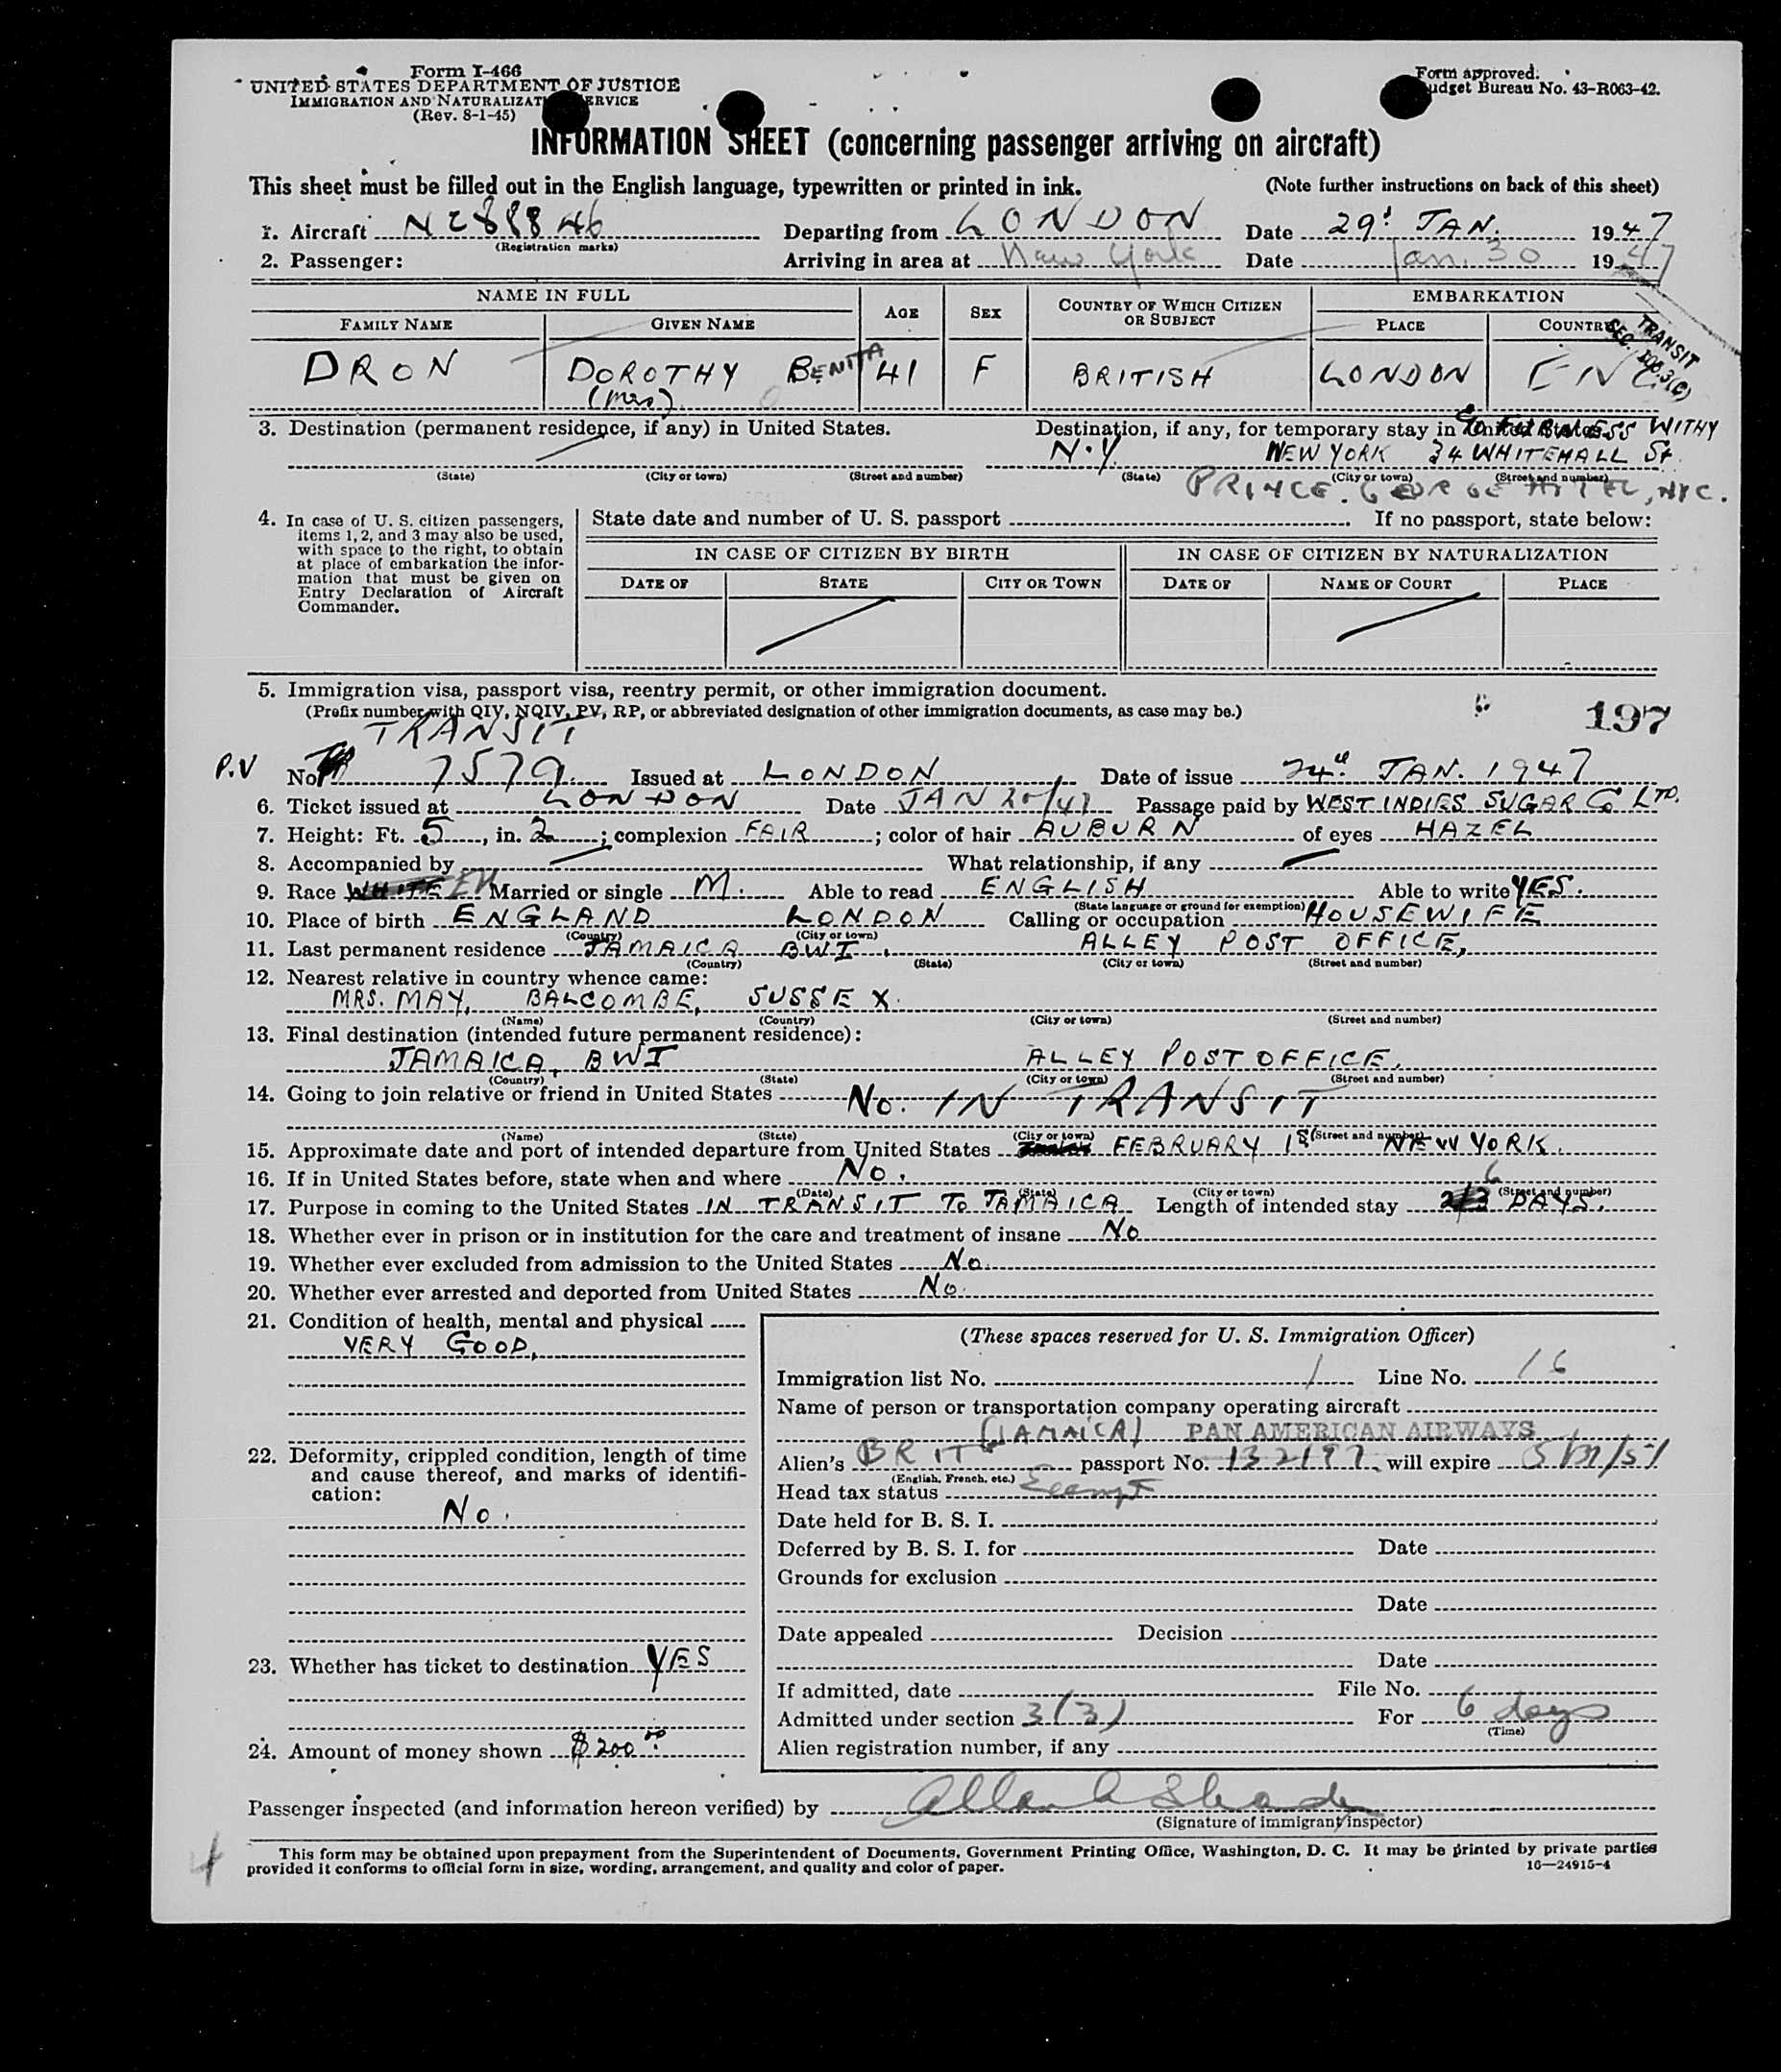 Form I-466
UNITED STATES DEPARTMENT OF JUSTICE
IMMIGRATION AND NATURALIZATION SERVICE
(Rev. 8-1-45)
Form approved.
Budget Bureau No. 43-R063-42.
INFORMATION SHEET (concerning passenger arriving on aircraft)
This sheet must be filled out in the English language, typewritten or printed in ink. (Note further instructions on back of this sheet)
1. Aircraft NC88846 Departing from LONDON Date 29th JAN. 1947
(Registration marks)
2. Passenger: Arriving in area at New York Date Jan. 30 1947
NAME IN FULL AGE SEX COUNTRY OF WHICH CITIZEN OR SUBJECT EMBARKATION
FAMILY NAME GIVEN NAME PLACE COUNTRY
TRANSIT
SEC. 100.3(C)
DRON DOROTHY BENITA 41 F BRITISH LONDON ENG
(Mrs)
3. Destination (permanent residence, if any) in United States. Destination, if any, for temporary stay in United States.
C/o FURNESS WITHY
N.Y. NEW YORK 34 WHITEHALL St.
(State) (City or town) (Street and number) (State) (City or town) (Street and number)
PRINCE GEORGE HOTEL, NYC.
4. In case of U. S. citizen passengers, items 1, 2, and 3 may also be used, with space to the right, to obtain at place of embarkation the information that must be given on Entry Declaration of Aircraft Commander.
State date and number of U. S. passport . If no passport, state below:
IN CASE OF CITIZEN BY BIRTH IN CASE OF CITIZEN BY NATURALIZATION
DATE OF STATE CITY OR TOWN DATE OF NAME OF COURT PLACE
5. Immigration visa, passport visa, reentry permit, or other immigration document.
(Prefix number with QIV, NQIV, PV, RP, or abbreviated designation of other immigration documents, as case may be.)
197
TRANSIT
P.V No. 7579 Issued at LONDON Date of issue 24th JAN. 1947
6. Ticket issued at LONDON Date JAN 20/47 Passage paid by WEST INDIES SUGAR Co LTD.
7. Height: Ft. 5, in. 2; complexion FAIR; color of hair AUBURN of eyes HAZEL
8. Accompanied by What relationship, if any
9. Race WHITE EN Married or single M. Able to read ENGLISH Able to write YES.
(State language or ground for exemption)
10. Place of birth ENGLAND LONDON Calling or occupation HOUSEWIFE
(Country) (City or town)
11. Last permanent residence JAMAICA BWI. ALLEY POST OFFICE,
(Country) (State) (City or town) (Street and number)
12. Nearest relative in country whence came:
MRS. MAY, BALCOMBE, SUSSEX.
(Name) (Country) (City or town) (Street and number)
13. Final destination (intended future permanent residence):
JAMAICA, BWI ALLEY POST OFFICE,
(Country) (State) (City or town) (Street and number)
14. Going to join relative or friend in United States No. IN TRANSIT
(Name) (State) (City or town) (Street and number)
15. Approximate date and port of intended departure from United States FEBRUARY 1st NEW YORK.
16. If in United States before, state when and where No.
(Date) (State) (City or town) (Street and number)
17. Purpose in coming to the United States IN TRANSIT TO JAMAICA Length of intended stay 2/3 6 DAYS.
18. Whether ever in prison or in institution for the care and treatment of insane No
19. Whether ever excluded from admission to the United States No.
20. Whether ever arrested and deported from United States No.
21. Condition of health, mental and physical
VERY GOOD,
22. Deformity, crippled condition, length of time and cause thereof, and marks of identification:
No.
23. Whether has ticket to destination YES
24. Amount of money shown $200 00
(These spaces reserved for U. S. Immigration Officer)
Immigration list No. 1 Line No. 16
Name of person or transportation company operating aircraft
(JAMAICA) PAN AMERICAN AIRWAYS
Alien's BRIT passport No. 132197 will expire
(English, French, etc.)
Head tax status Exempt
Date held for B. S. I.
Deferred by B. S. I. for Date
Grounds for exclusion
Date
Date appealed Decision
Date
If admitted, date File No.
Admitted under section 3(3) For 6 days
(Time)
Alien registration number, if any
Passenger inspected (and information hereon verified) by
(Signature of immigrant inspector)
This form may be obtained upon prepayment from the Superintendent of Documents, Government Printing Office, Washington, D. C. It may be printed by private parties
provided it conforms to official form in size, wording, arrangement, and quality and color of paper.
16—24915-4
4